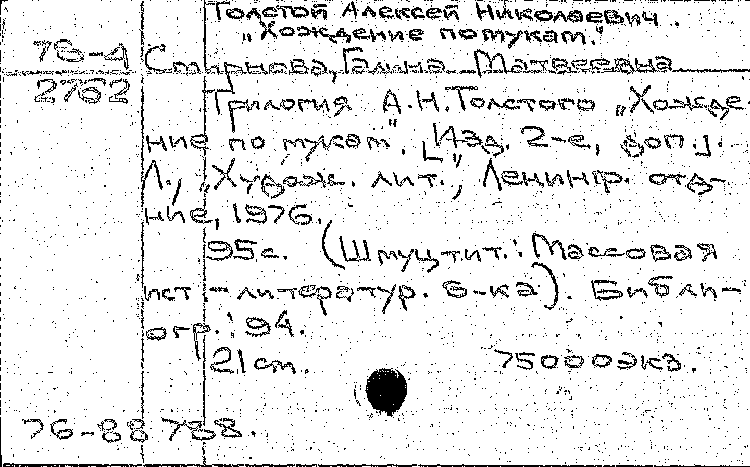 Толстой Алексей Николаевич.
„Хождение по мукам."
76-4 Смирнова, Галина Матвеевна
2762
Трилогия А.Н.Толстого „Хожде
ние по мукам". [Изд. 2-е, доп.].
Л., „Худож. лит.", Ленингр. отд-
ние, 1976.
95с. (Шмуцтит.: Массовая
ист.-литератур. б-ка). Библи-
огр.: 94.
21 cm. 75000экз.
76-88 788.